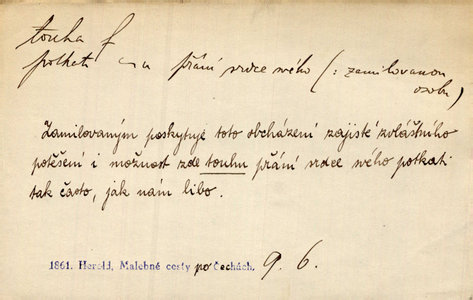 touha f
potkati ~u přání srdce svého (: zamilovanou
osobu)
Zamilovaným poskytuje toto obcházení zajisté zvláštního
potěšení i možnost zde touhu přání srdce svého potkati
tak často, jak nám libo.
1861. Herold, Malebné cesty po Čechách, 9. 6.